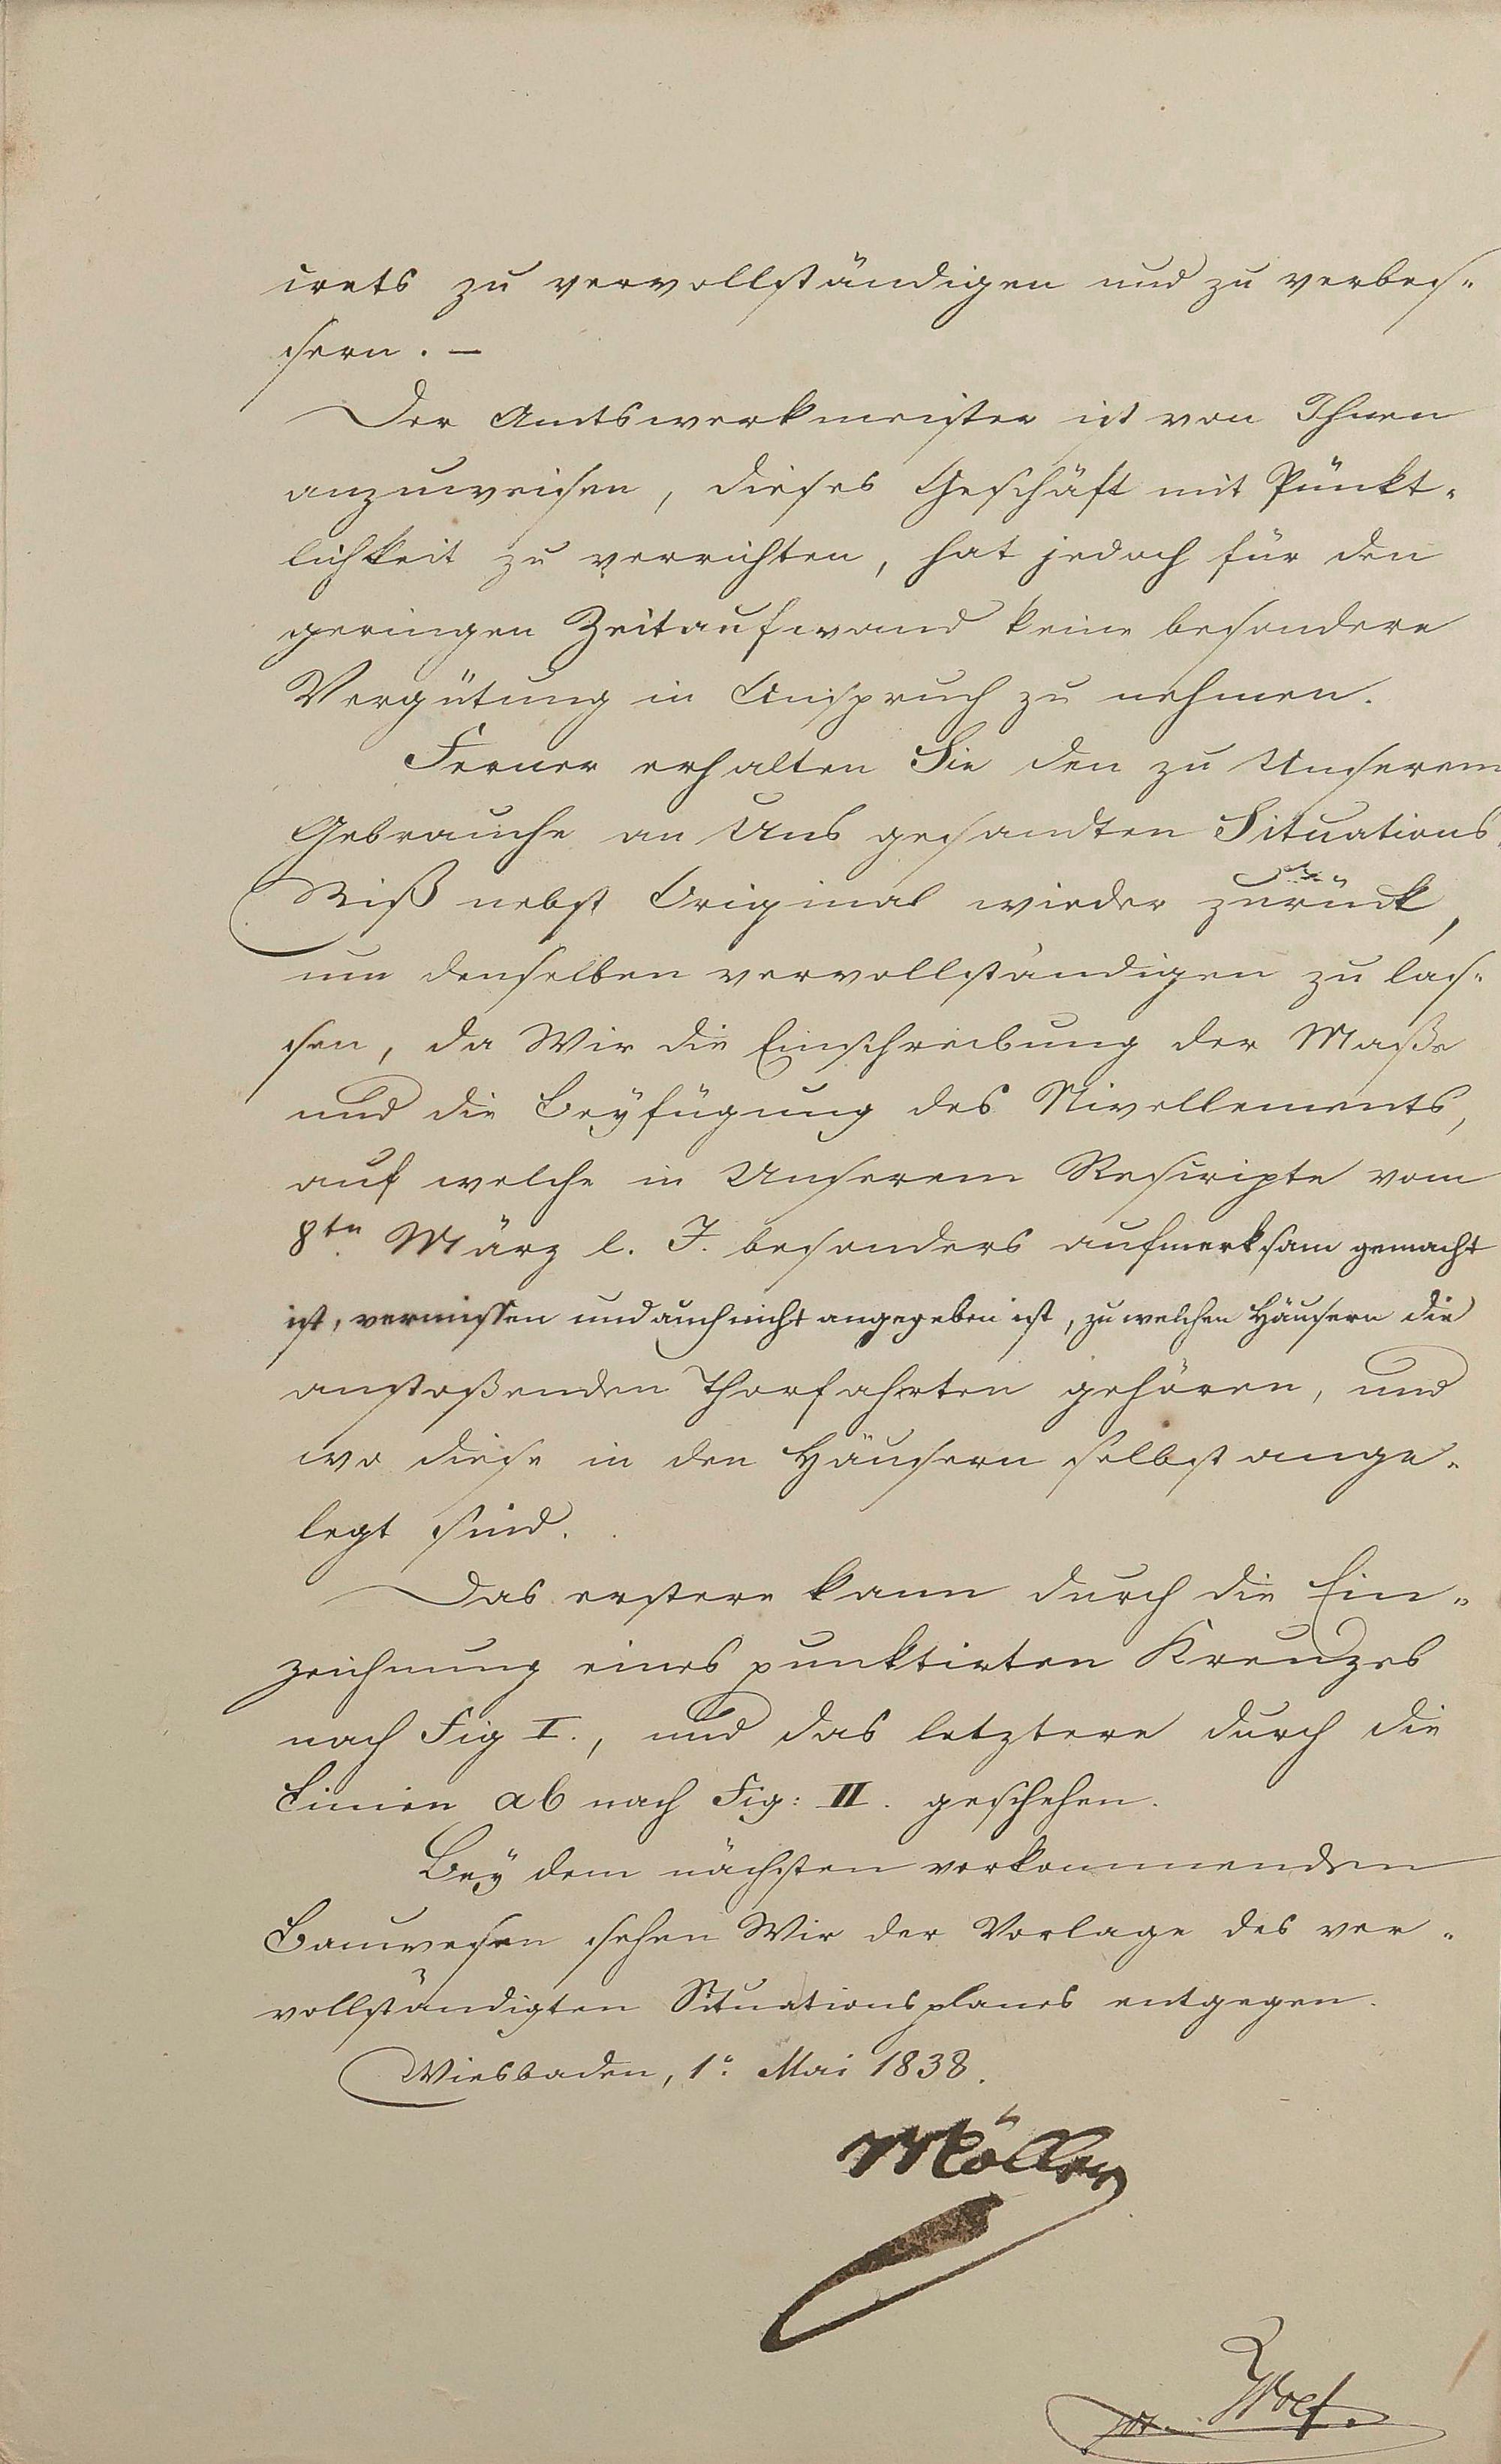 crets zu vervollständigen und zu verbes-
sern. —
Der Amtswerkmeister ist von Ihnen
anzuweisen, dieses Geschäft mit Pünkt-
lichkeit zu verrichten, hat jedoch für den
geringen Zeitaufwand keine besondere
Vergütung in Anspruch zu nehmen.
Ferner erhalten Sie den zu Unserem
Gebrauche an Uns gesandten Situations-
Riß nebst Original wieder zurück,
um denselben vervollständigen zu las-
sen, da Wir die Einschreibung der Maße
und die Beyfügung des Nivellements,
auf welche in Unserem Rescripte vom
8ten März l. J. besonders aufmerksam gemacht
ist, vermissen und auch nicht angegeben ist, zu welchen Häusern die
anstoßenden Thorfahrten gehören, und
wo diese in den Häusern selbst ange-
legt sind.
Das erstere kann durch die Ein-
zeichnung eines punktirten Kreuzes
nach Fig I., und das letztere durch die
Linien ab nach Fig: II. geschehen.
Bey dem nächsten vorkommenden
Bauwesen sehen Wir der Vorlage des ver-
vollständigten Situationsplanes entgegen.
Wiesbaden, 1. Mai 1838.
Möller